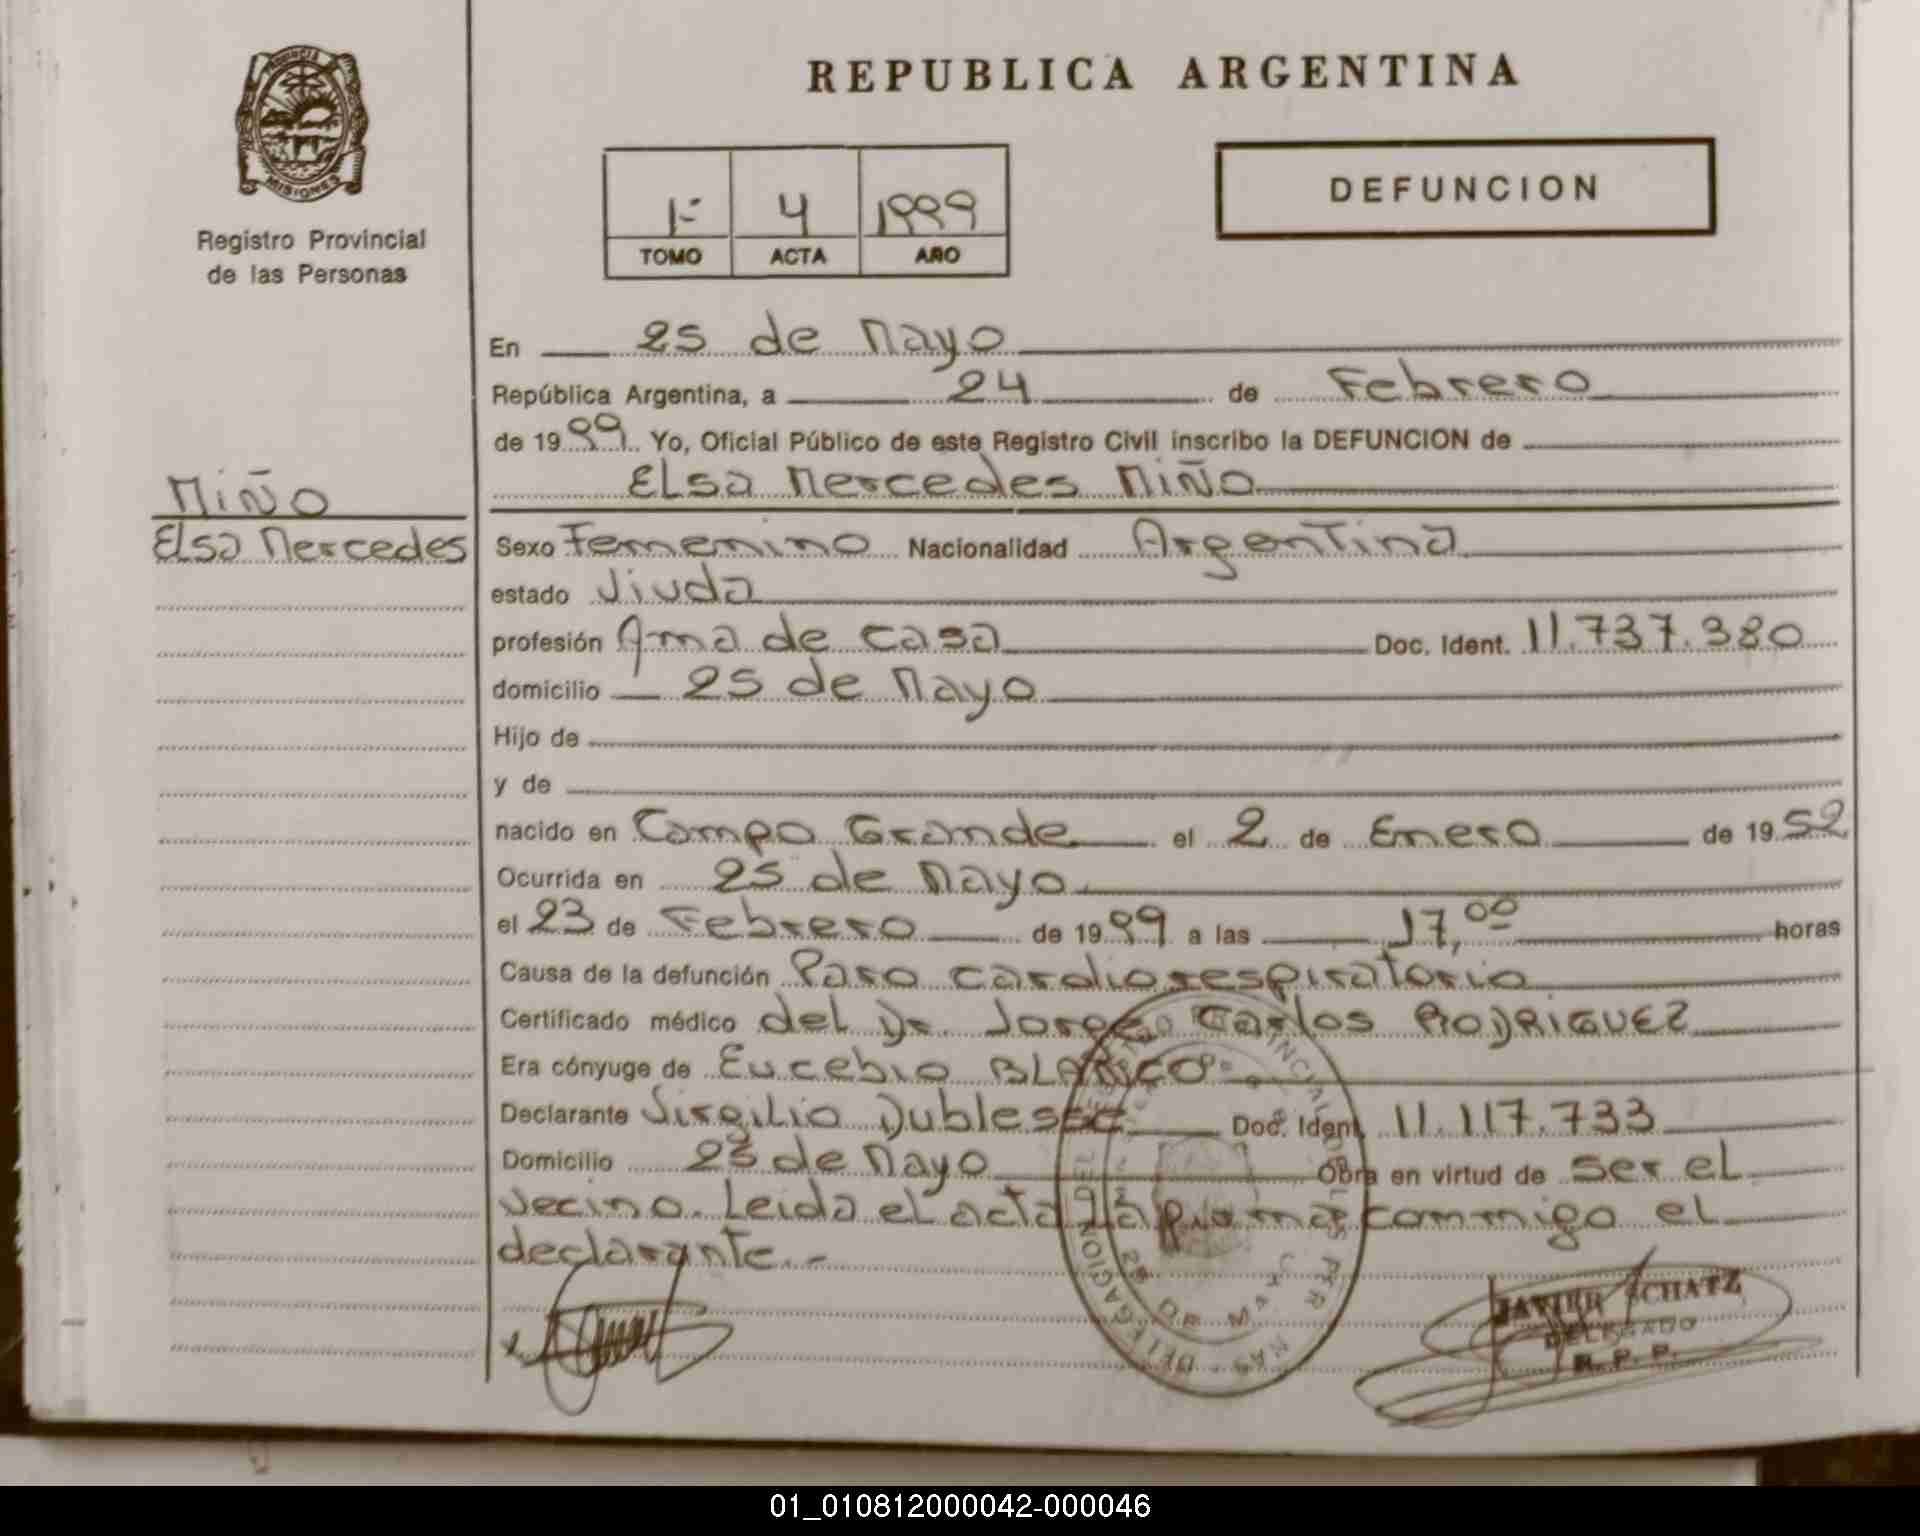 PROVINCIA
MISIONES
Registro Provincial
de las Personas
REPUBLICA ARGENTINA
1- 4 1999
TOMO ACTA AÑO
DEFUNCION
En 25 de Mayo
República Argentina, a 24 de Febrero
de 1999. Yo, Oficial Público de este Registro Civil inscribo la DEFUNCION de
Elsa Mercedes Miño
MIÑO
Elsa Mercedes
Sexo Femenino Nacionalidad Argentina
estado Viuda
profesión Ama de casa Doc. Ident. 11.737.380
domicilio 25 de Mayo
Hijo de
y de
nacido en Campo Grande el 2 de Enero de 1952
Ocurrida en 25 de Mayo
el 23 de Febrero de 1999 a las 17,00 horas
Causa de la defunción Paro cardiorespiratorio
Certificado médico del Dr. Jorge Carlos RODRIGUEZ
Era cónyuge de Eucebio BLANCO.
Declarante Virgilio Dublesse Doc. Ident. 11.117.733
Domicilio 25 de Mayo Obra en virtud de ser el
vecino. Leida el acta la firma conmigo el
declarante.-
JAVIER SCHATZ
DELEGADO
R. P. P.
01_010812000042-000046